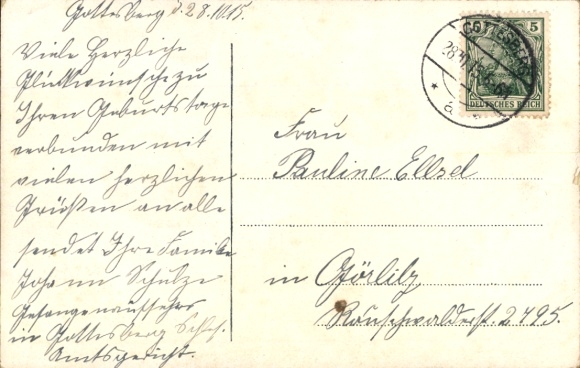 Gottesberg d. 28.10.15.
Viele Herzliche
Glückwünsche zu
Ihren Geburtstage
verbunden mit
vielen herzlichen
Grüßen an alle
sendet Ihre Familie
Johann Schulze
Gefangenaufseher
in Gottesberg Schles.
Amtsgericht.
GOTTESBERG
28.10.15
a
5
DEUTSCHES REICH
Frau
Pauline
in Görlitz
Rauschwalderst.